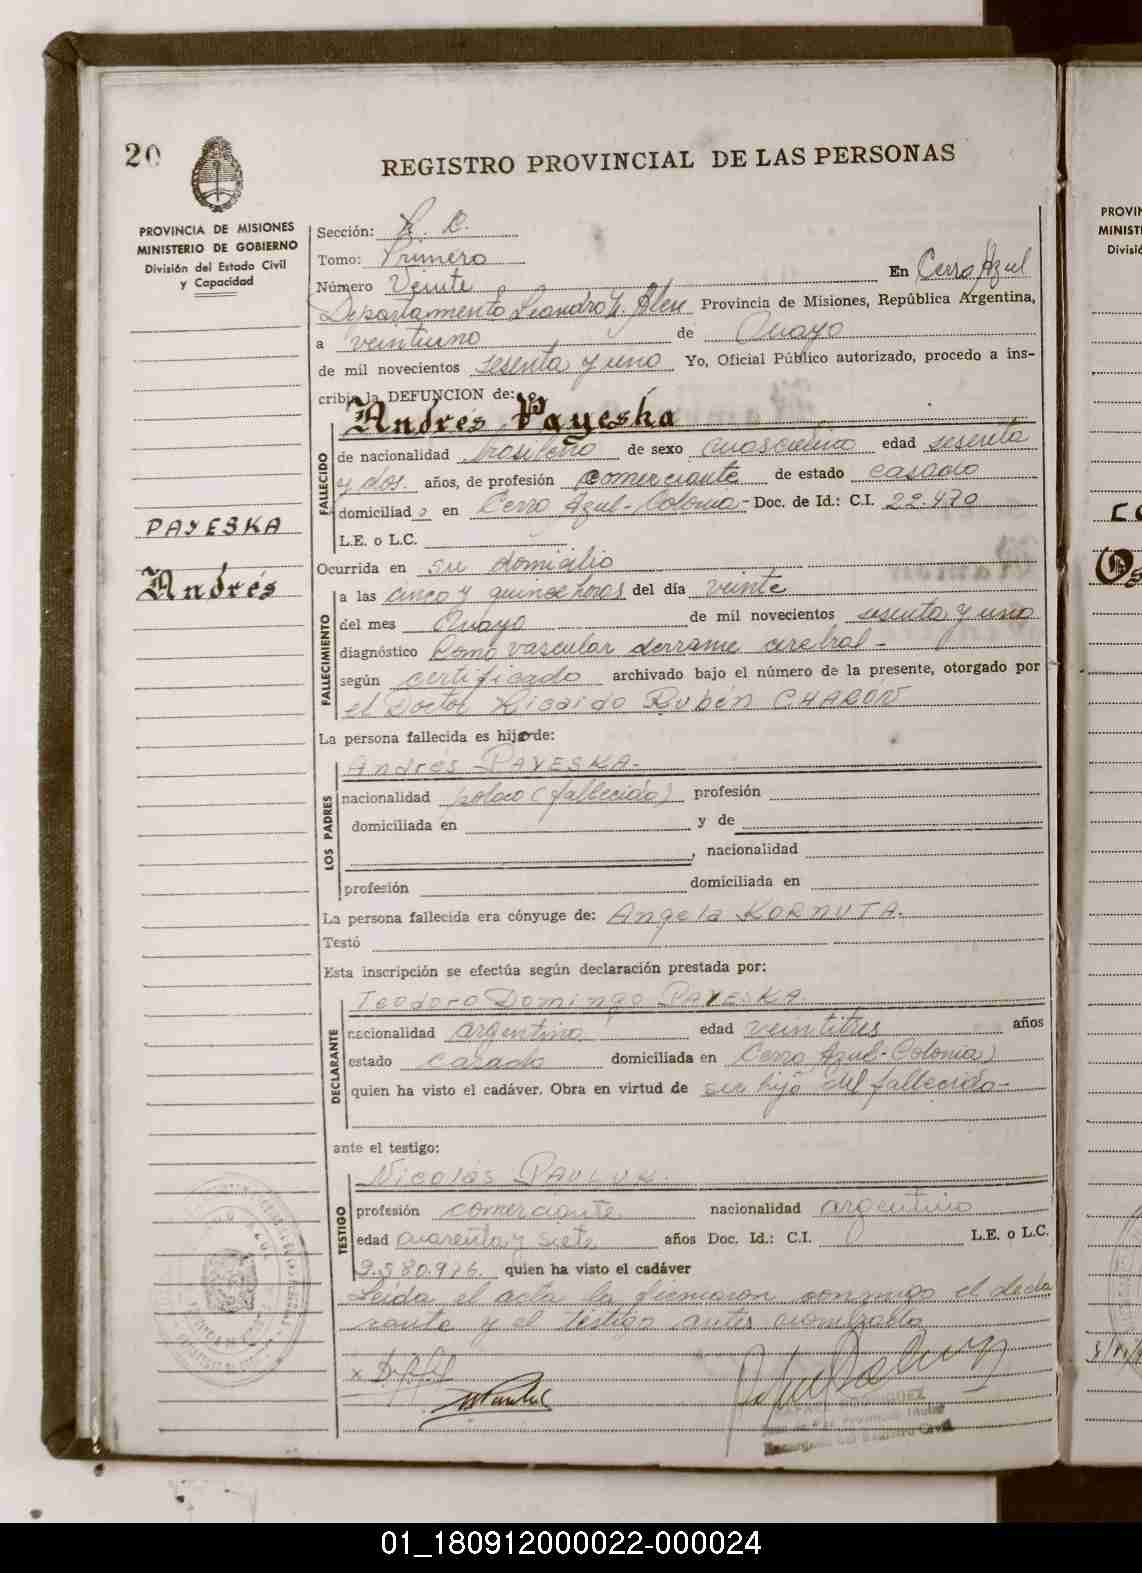 20
REGISTRO PROVINCIAL DE LAS PERSONAS
PROVINCIA DE MISIONES
MINISTERIO DE GOBIERNO
División del Estado Civil
y Capacidad
Sección:
Tomo: Primero
Número Veinte En Cerro Azul
Departamento Leandro N. Alem Provincia de Misiones, República Argentina,
a veintiuno de Mayo
de mil novecientos sesenta y uno Yo, Oficial Público autorizado, procedo a ins-
cribir la DEFUNCION de:
Andrés Payeska
FALLECIDO
de nacionalidad brasileño de sexo masculino edad sesenta
y dos. años, de profesión comerciante de estado casado
domiciliado en Cerro Azul-Colonia- Doc. de Id.: C.I. 22.470
L.E. o L.C.
PAYESKA
Andrés
Ocurrida en su domicilio
FALLECIMIENTO
a las cinco y quince horas del día veinte
del mes Mayo de mil novecientos sesenta y uno
diagnóstico Coma vascular derrame cerebral-
según certificado archivado bajo el número de la presente, otorgado por
el Doctor Ricardo Rubén
La persona fallecida es hijo de:
LOS PADRES
Andrés PAYESKA.
nacionalidad polaco (fallecido) profesión
domiciliada en y de
, nacionalidad
profesión domiciliada en
La persona fallecida era cónyuge de: Angela KORNUTA.
Testó
Esta inscripción se efectúa según declaración prestada por:
DECLARANTE
Teodoro Domingo PAYESKA.
nacionalidad argentino edad veintitres años
estado casado domiciliada en Cerro Azul-Colonia)
quien ha visto el cadáver. Obra en virtud de ser hijo del fallecido-
ante el testigo:
TESTIGO
Nicolás PAWLUK.
profesión comerciante nacionalidad argentino
edad cuarenta y siete años Doc. Id.: C.I. L.E. o L.C.
quien ha visto el cadáver
Leida el acta la firmaron conmigo el decla
rante y el testigo antes nombrado
PROVIN
MINIST
Divisió
01_180912000022-000024